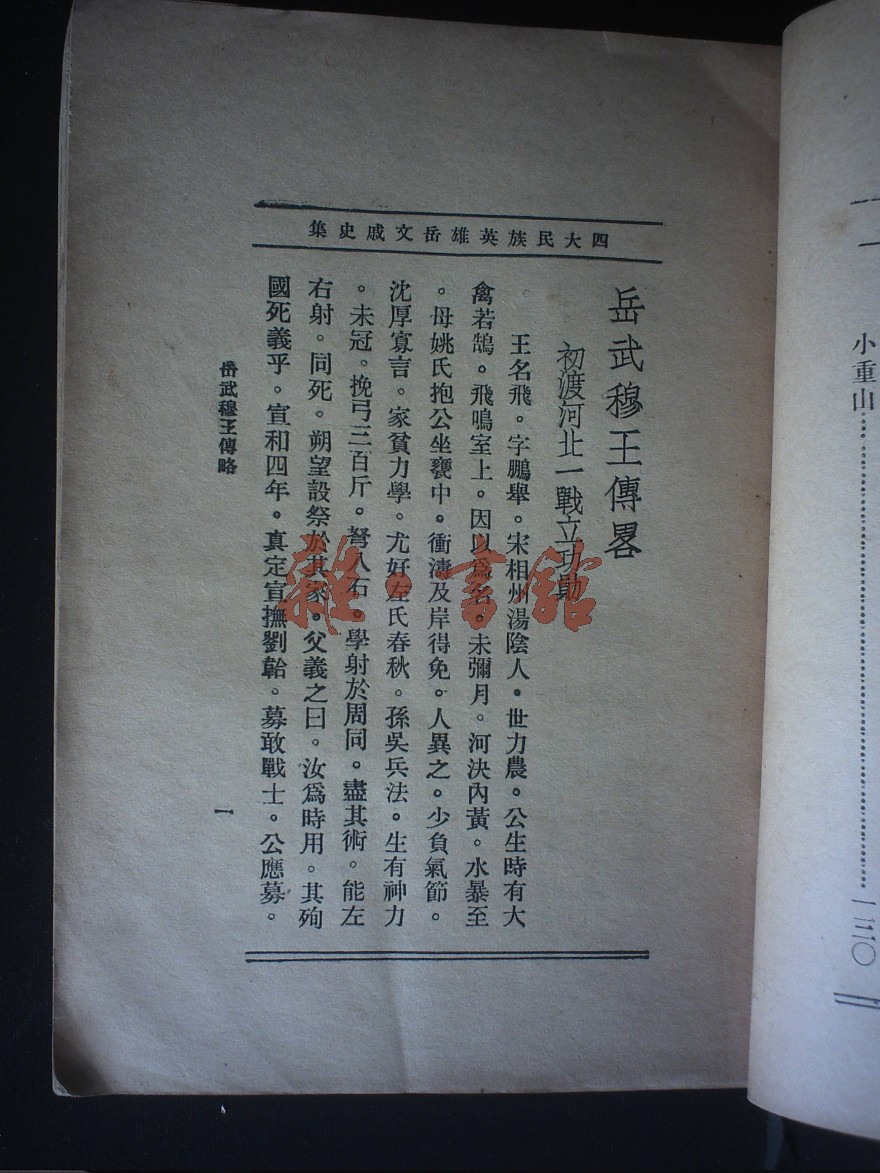 小重山……………………一三〇
四大民族英雄岳文戚史集
岳武穆王傳畧
初渡河北一戰立功勛
王名飛。字鵬舉。宋相州湯陰人。世力農。公生時有大
禽若鵠。飛鳴室上。因以爲名。未彌月。河決內黃。水暴至
。母姚氏抱公坐甕中。衝濤及岸得免。人異之。少負氣節。
沈厚寡言。家貧力學。尤好左氏春秋。孫吳兵法。生有神力
。未冠。挽弓三百斤。弩八石。學射於周同。盡其術。能左
右射。同死。朔望設祭於其家。父義之曰。汝爲時用。其殉
國死義乎。宣和四年。真定宣撫劉韐。募敢戰士。公應募。
岳武穆王傳略
一
雜·書館